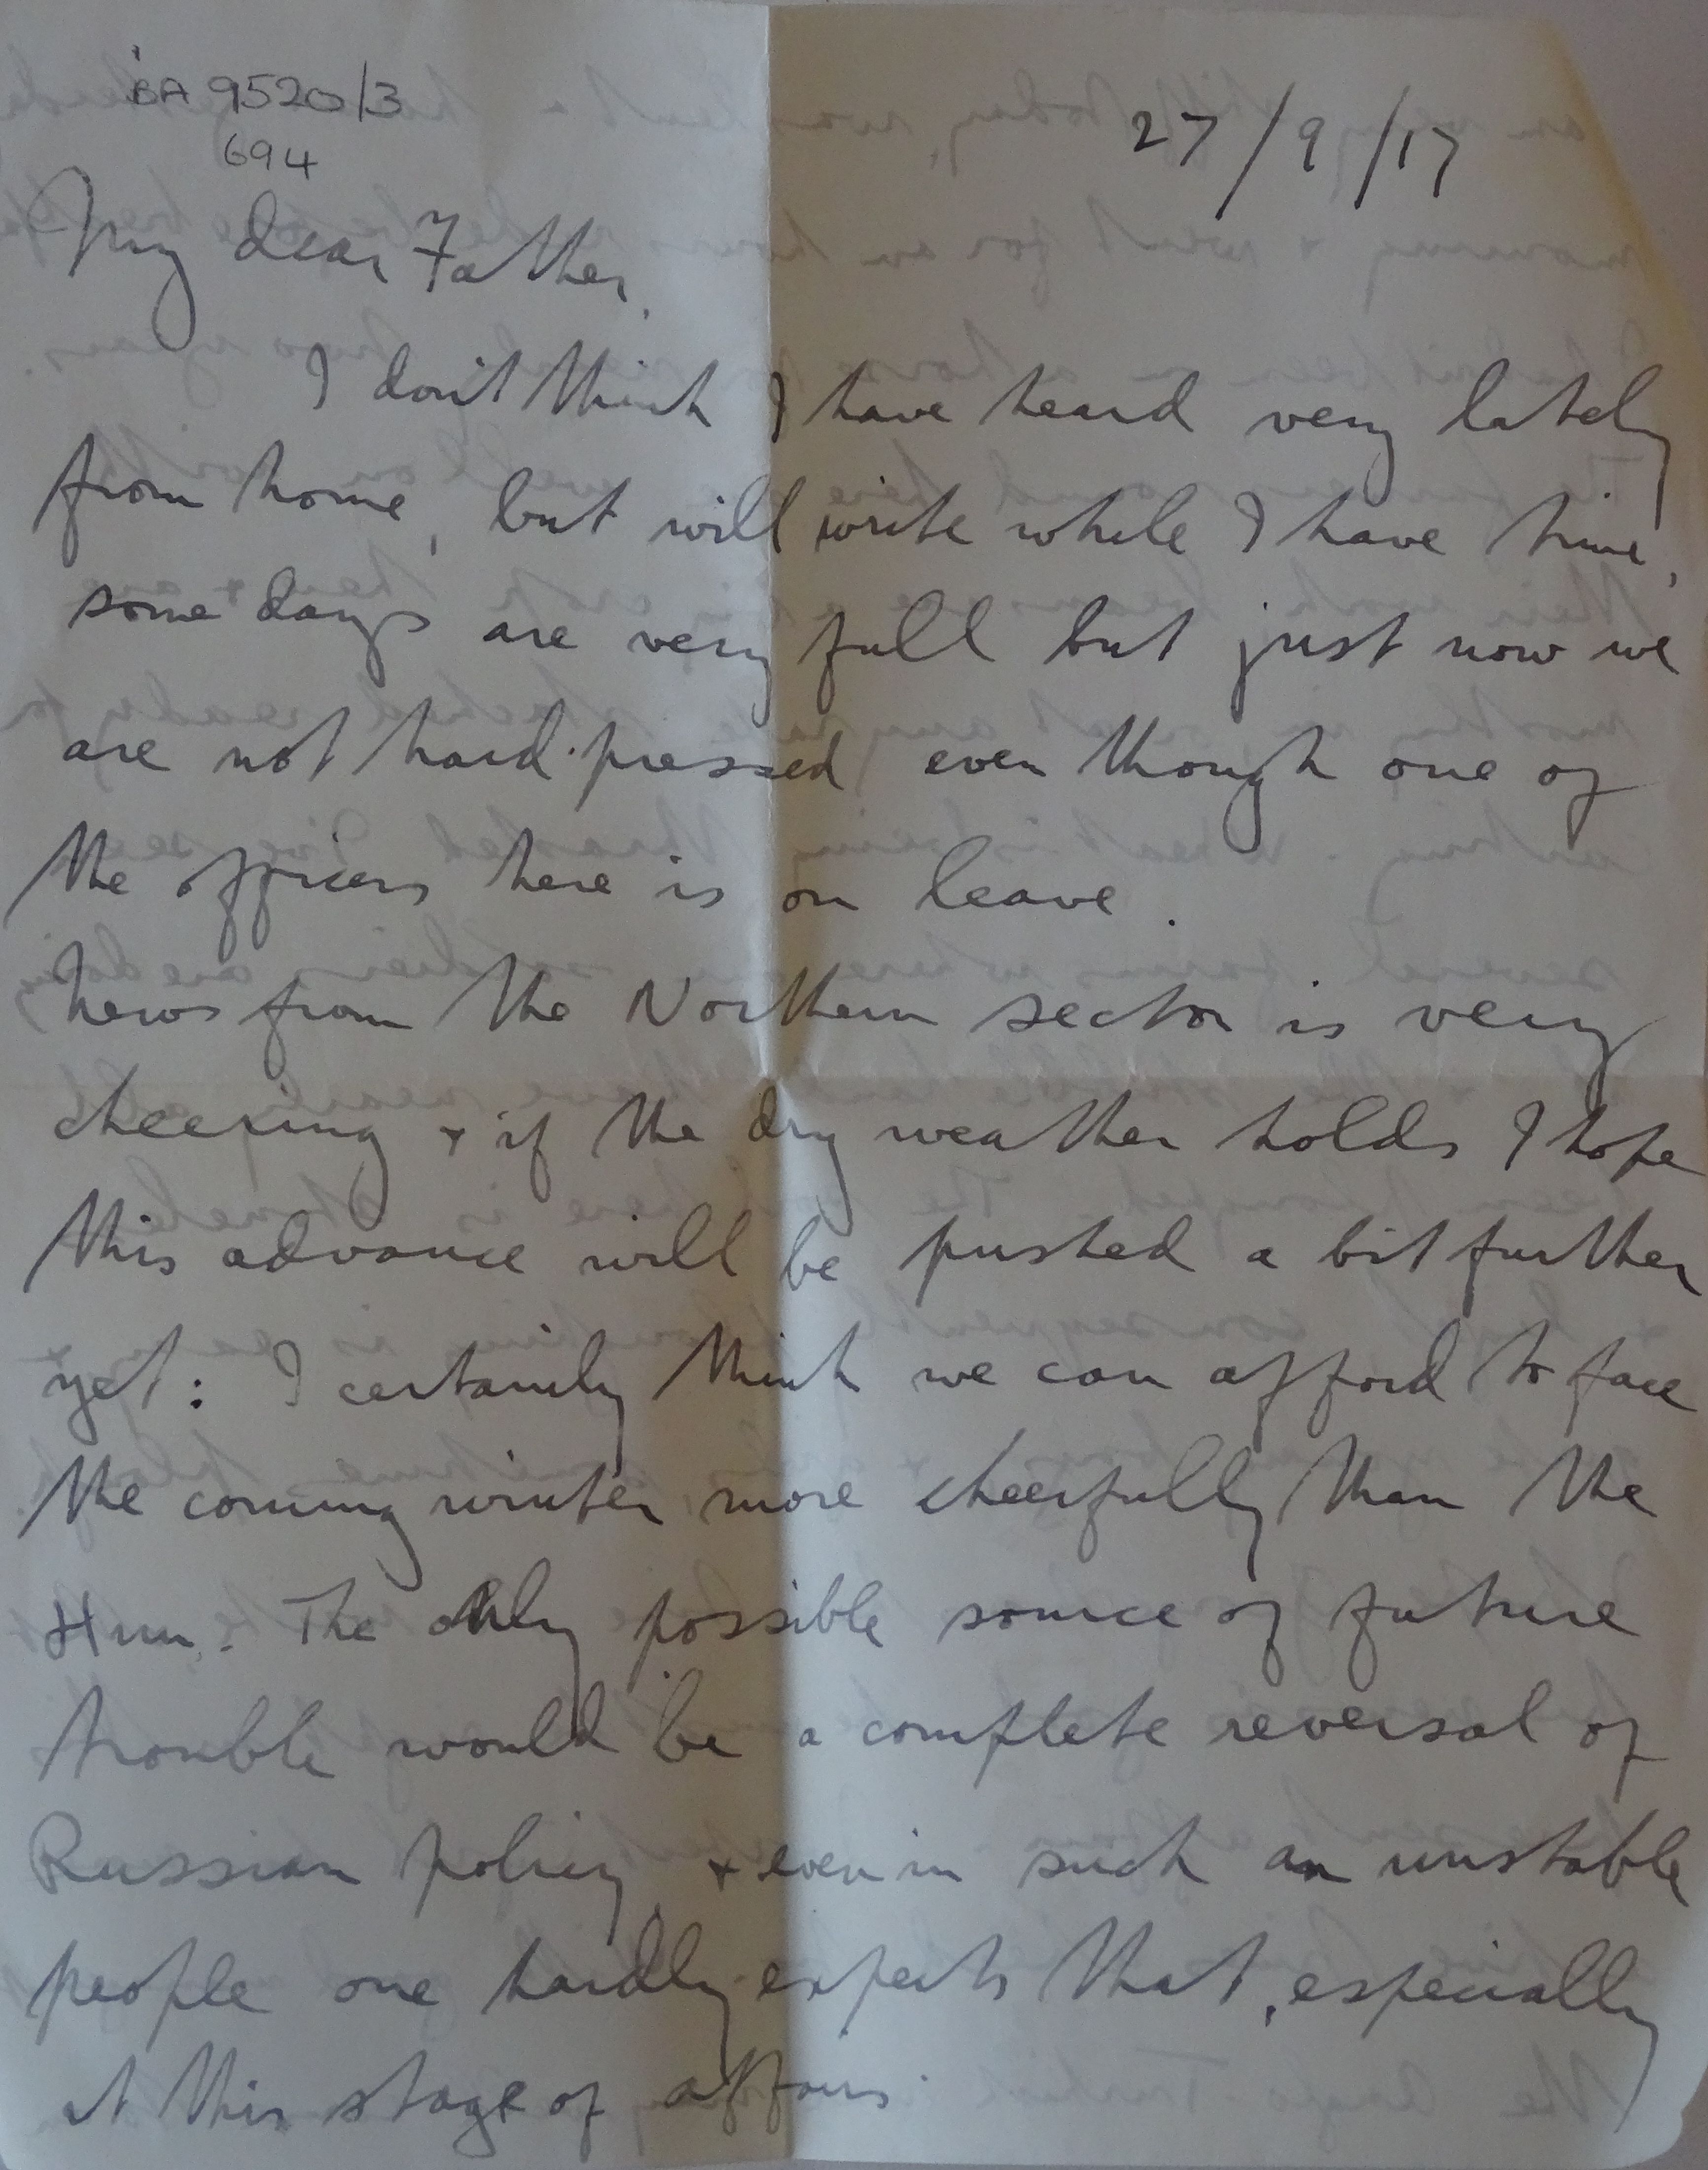 BA 9520/3
694
27/9/17
My dear Father,
I don't think I have heard very lately
from home, but will write while I have time,
some days are very full but just now we
are not hard pressed even though one of
the officers here is on leave.
News from the Northern sector is very
cheering + if the dry weather holds I hope
this advance will be pushed a bit further
yet: I certainly think we can afford to face
the coming winter more cheerfully than the
Hun. The only possible source of future
trouble would be a complete reversal of
Russian policy, + even in such an unstable
people one hardly expects that, especially
at this stage of affairs.